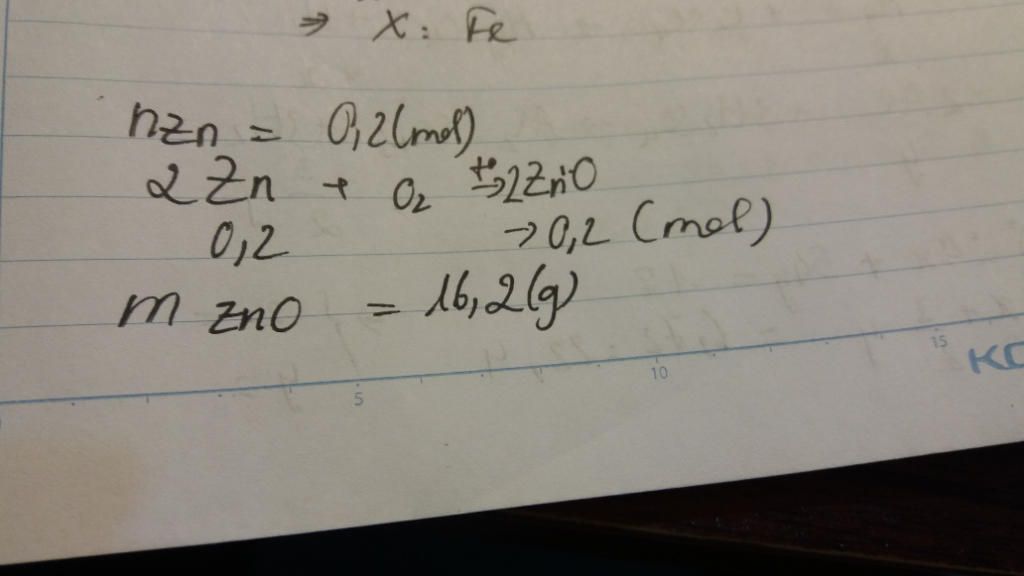 ⇒ X: Fe
nZn = 0,2(mol)
2Zn + O2 t°→ 2ZnO
0,2 → 0,2 (mol)
m ZnO = 16,2(g)
5 10 15